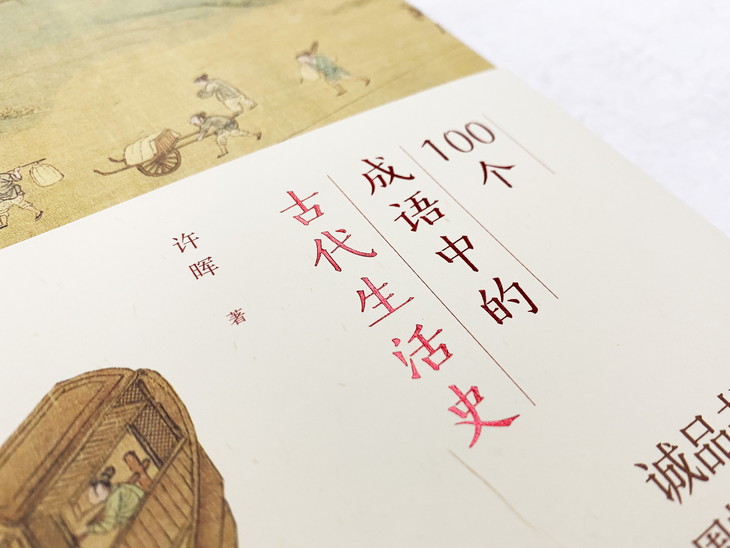 100个
成语中的
古代生活史
许晖 著
诚品